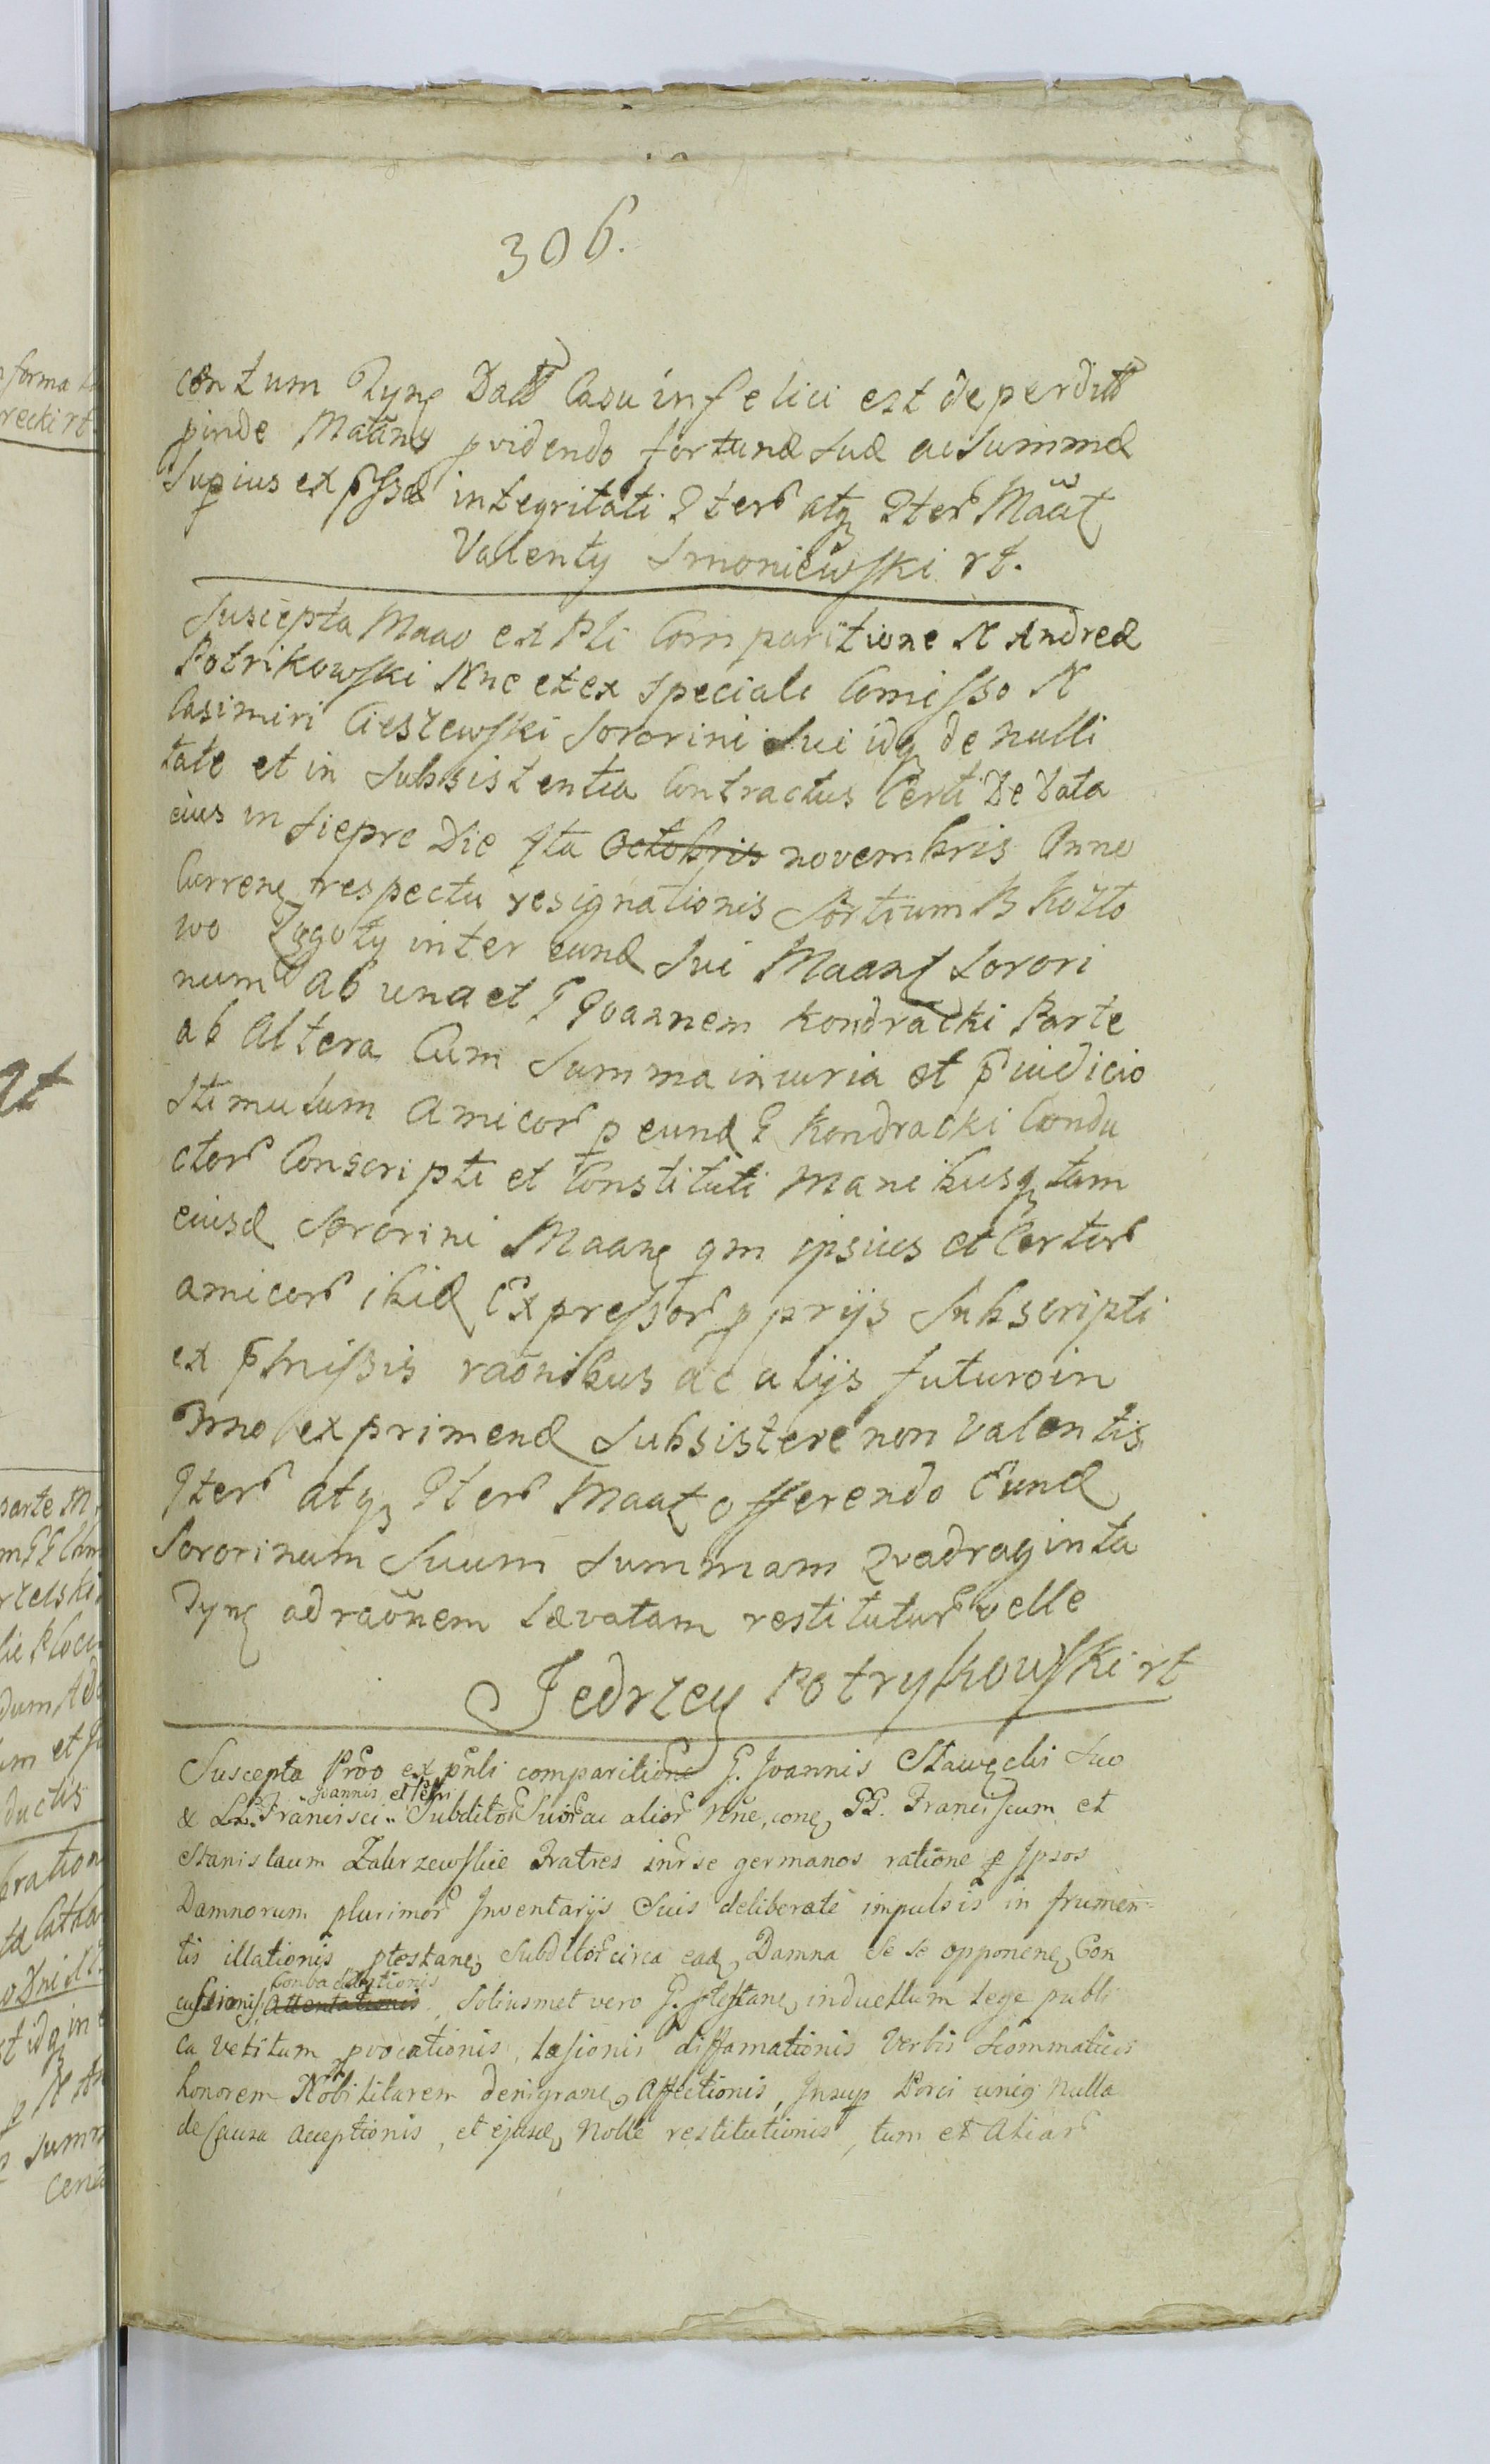 306.
centum Tyng Datt Casu infelici est deperditt
pinde Maãng pvidendo fortunæ suæ ac summæ
supius expssæ integritati Iter atq Iter Mãat
Valenty Smoniewski rt.
Suscepta Maao ex Pli Comparitione N Andreæ
Potrikowski Nne et ex speciali Comisso N
Casimiri Cieszewski Sororini sui idq de nulli
tate et in subsistentia Contractus Certi De Data
eius in Siepre Die 4ta Octobris novembris Anno
Curren respectu resignationis Sortium B Kotto
wo Zagoty inter eund sui Maant Sorori
num ab una et G Joannem Kondracki Parte
ab Altera Cum summa iniuria et piudicio
stimulum Amicor p eund G Kondracki Condu
ctor Conscripti et Constituti manibusq tam
eiusd Sororini Maang qm ipsius et Certor
amicor ibid Expressor pprijs Subscripti
ex pmissis raõnibus ac alijs futuro in
Trno exprimend subsistere non valentis
Iter atq Iter Maat offerendo Eund
Sororinum Suum summam Quadraginta
Tyng ad raõnem Levatam restitutur velle
Jedrzey Potrykowski rt
Suscepta Prõo ex pnli comparitione G. Joannis Stawęcki suo
Joannis et Petri
& LL. Francisci Subditor Suor ac alior nñe, con, GG. Franciscum et
Stanislaum Zakrzewskie Fratres inr se germanos ratione p Ipsos
Damnorum plurimor Inventarijs Suis deliberate impulsis in frumen-
tis illationis ptestan, Subditor circa ead, Damna se se opponen, Con
Conbaculationis
cussionis, Attentationis, Solius met vero G. ptestan, in duellum Lege publi
ca vetitum pvocationis, Læsionis diffamationis Verbis Scommaticis
honorem Nobilitarem denigran, Affectionis, Insup Porci unig nulla
de Causa acceptionis, et ejusd, Nolle restitutionis, tum et Aliar